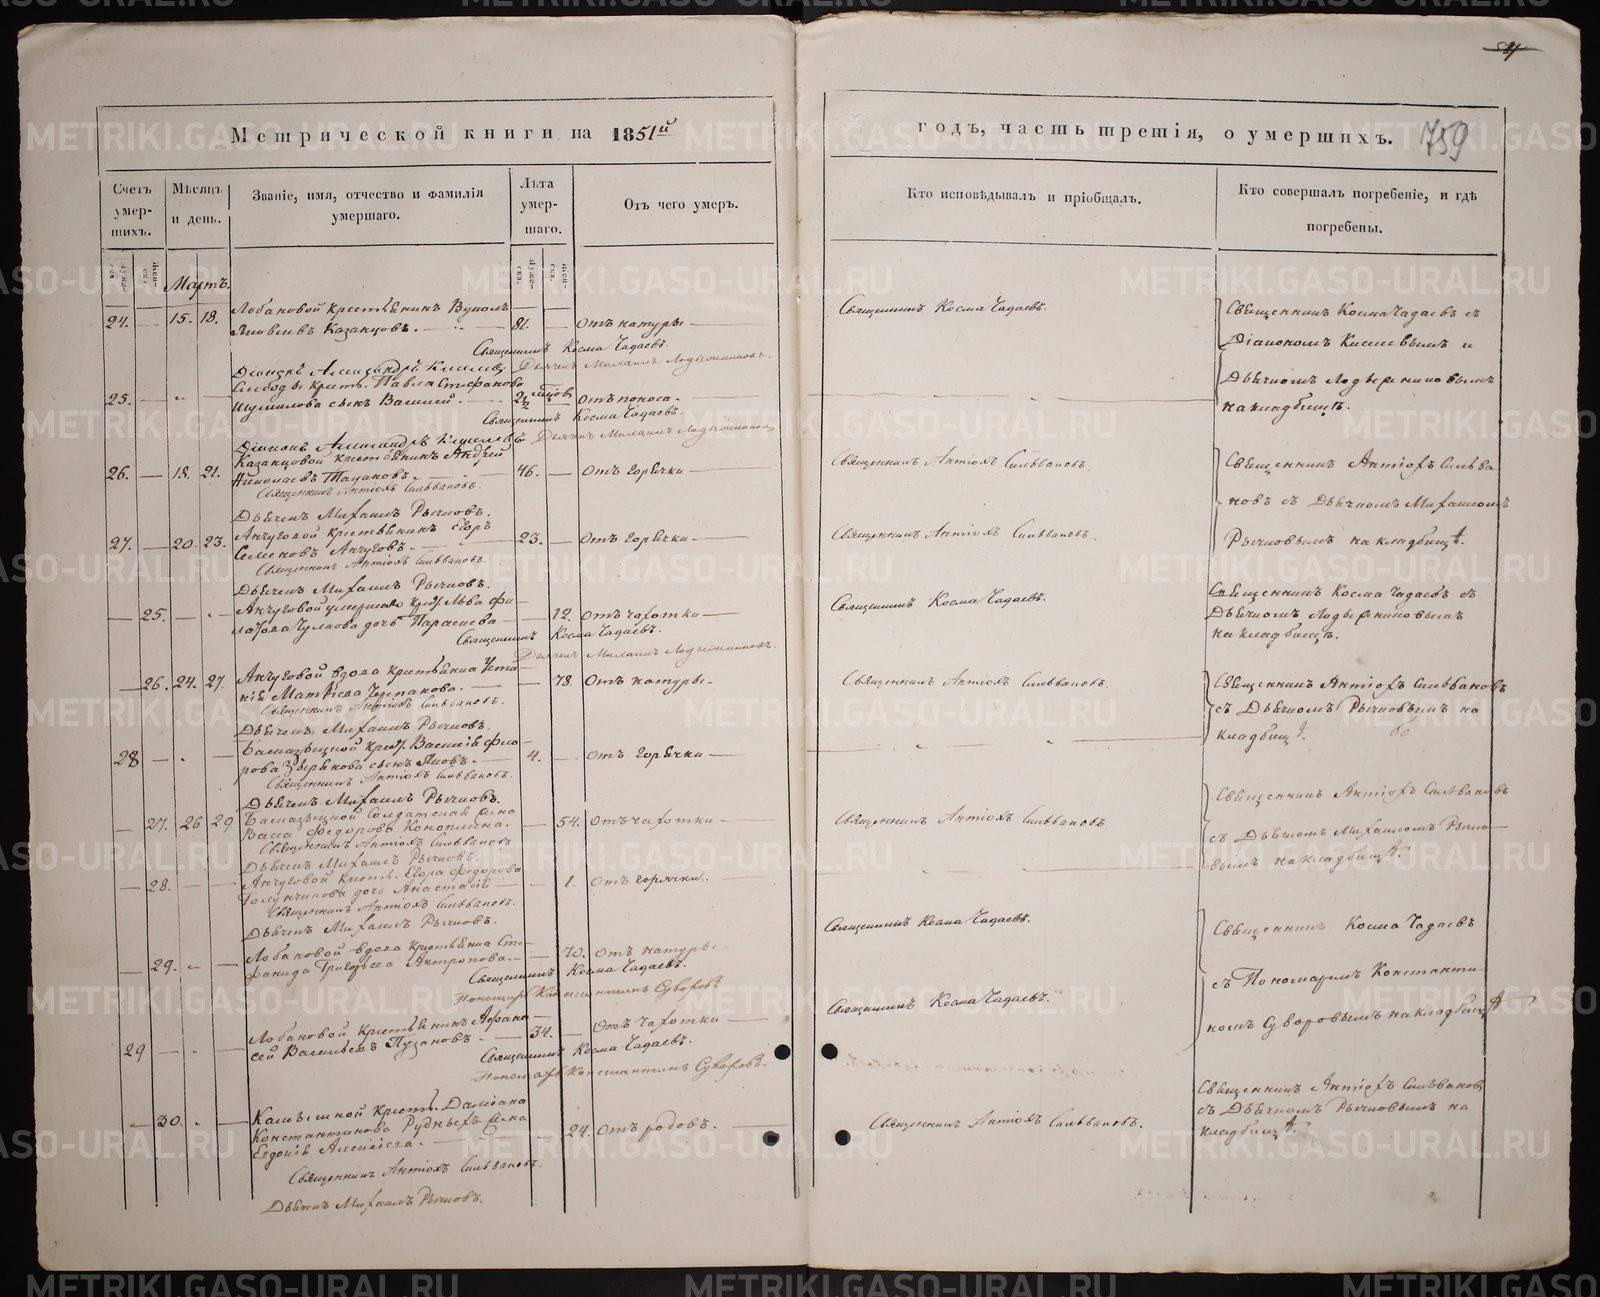 Метрической книги на 1851й
годъ, часть третія, о умершихъ.
759
Счетъ умер-
шихъ.
Мѣсяцъ
и день.
Званіе, имя, отчество и фамилія
умершаго.
Лѣта
умер-
шаго.
Отъ чего умеръ.
Кто исповѣдывалъ и пріобщалъ.
Кто совершалъ погребеніе, и гдѣ
погребены.
Мартъ.
24. 15. 18. Лобановой крестьянинъ Вуколъ
Яковлевъ Казанцовъ. 81. Отъ натуры
Священникъ Косма Чадаевъ.
Священникъ Косма Чадаевъ.
Священникъ Косма Чадаевъ съ
Діакономъ Киселевымъ и
Дьячкомъ
на кладбищѣ.
Діаконъ Александръ Киселевъ
Дьячекъ Михаилъ
Слободы крест. Павла Стефанова
25. Шумилова сынъ Василій. Отъ поноса
Священникъ Косма Чадаевъ.
Діаконъ Александръ Киселевъ
Дьячекъ Михаилъ
26. 18. 21. Казанцовой крестьянинъ Андрей
Николаевъ 46. Отъ горячки
Священникъ Антіохъ Сильвановъ.
Священникъ Антіохъ Сильвановъ.
Священникъ Антіохъ Сильва
новъ съ Дьячкомъ Михаиломъ
Рычковымъ на кладбищѣ.
Дьячекъ Михаилъ Рычковъ.
27. 20. 23. Анчуговой крестьянинъ Егоръ
Семеновъ Анчуговъ 23. Отъ горячки
Священникъ Антіохъ Сильвановъ.
Священникъ Антіохъ Сильвановъ.
Дьячекъ Михаилъ Рычковъ.
25. Анчуговой умершаго крест. Льва Фи
латова Чулкова дочь Параскева 12. Отъ чахотки
Священникъ Косма Чадаевъ.
Священникъ Косма Чадаевъ.
Священникъ Косма Чадаевъ съ
Дьячкомъ
на кладбищѣ.
Дьячекъ Михаилъ
26. 24. 27. Анчуговой вдова крестьянка Усти
нія Матвіева Черепанова. 78. Отъ натуры
Священникъ Антіохъ Сильвановъ.
Священникъ Антіохъ Сильвановъ.
Священникъ Антіохъ Сильвановъ
съ Дьячкомъ Рычковымъ на
кладбищѣ.
Дьячекъ Михаилъ Рычковъ.
28 крест. Василія Фео
рова Зырянова сынъ Яковъ. 4. Отъ горячки
Священникъ Антіохъ Сильвановъ.
Дьячекъ Михаилъ Рычковъ.
27. 26 29 Солдатская жена
Васса Федоровъ Коноплина. 54. Отъ чахотки
Священникъ Антіохъ Сильвановъ
Священникъ Антіохъ Сильвановъ
Священникъ Антіохъ Сильвановъ
съ Дьячкомъ Михаиломъ Рычко
вымъ на кладбищѣ.
Дьячекъ Михаилъ Рычковъ.
28. Анчуговой крест. Егора Федорова
Голунчикова дочь Анастасія 1. Отъ горячки.
Священникъ Антіохъ Сильвановъ.
Дьячекъ Михаилъ Рычковъ.
29. Лобановой вдова крестьянка Сте
фанида Григорьева Антропова 70. Отъ натуры
Священникъ Косма Чадаевъ.
Священникъ Косма Чадаевъ.
Священникъ Косма Чадаевъ
съ Пономаремъ Константи
номъ Суворовымъ на кладбищѣ
Пономарь Константинъ Суворовъ
29 Лобановой крестьянинъ Афана
сей Васильевъ Пузановъ. 34. Отъ чахотки
Священникъ Косма Чадаевъ.
Священникъ Косма Чадаевъ.
Пономарь Константинъ Суворовъ.
30. Камышной крест. Даміана
Константинова Рудныхъ жена
Евдокія Алексіева. 24. Отъ родовъ.
Священникъ Антіохъ Сильвановъ.
Священникъ Антіохъ Сильвановъ
съ Дьячкомъ Рычковымъ на
кладбищѣ.
Священникъ Антіохъ Сильвановъ.
Дьячекъ Михаилъ Рычковъ.
METRIKI.GASO-URAL.RU